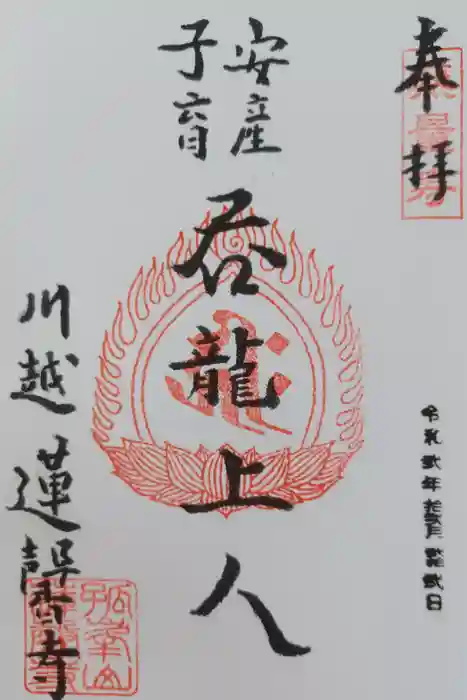 奉拝
安産
子育
呑龍上人
川越 蓮馨寺
令和弐年拾弐月
孤峯山